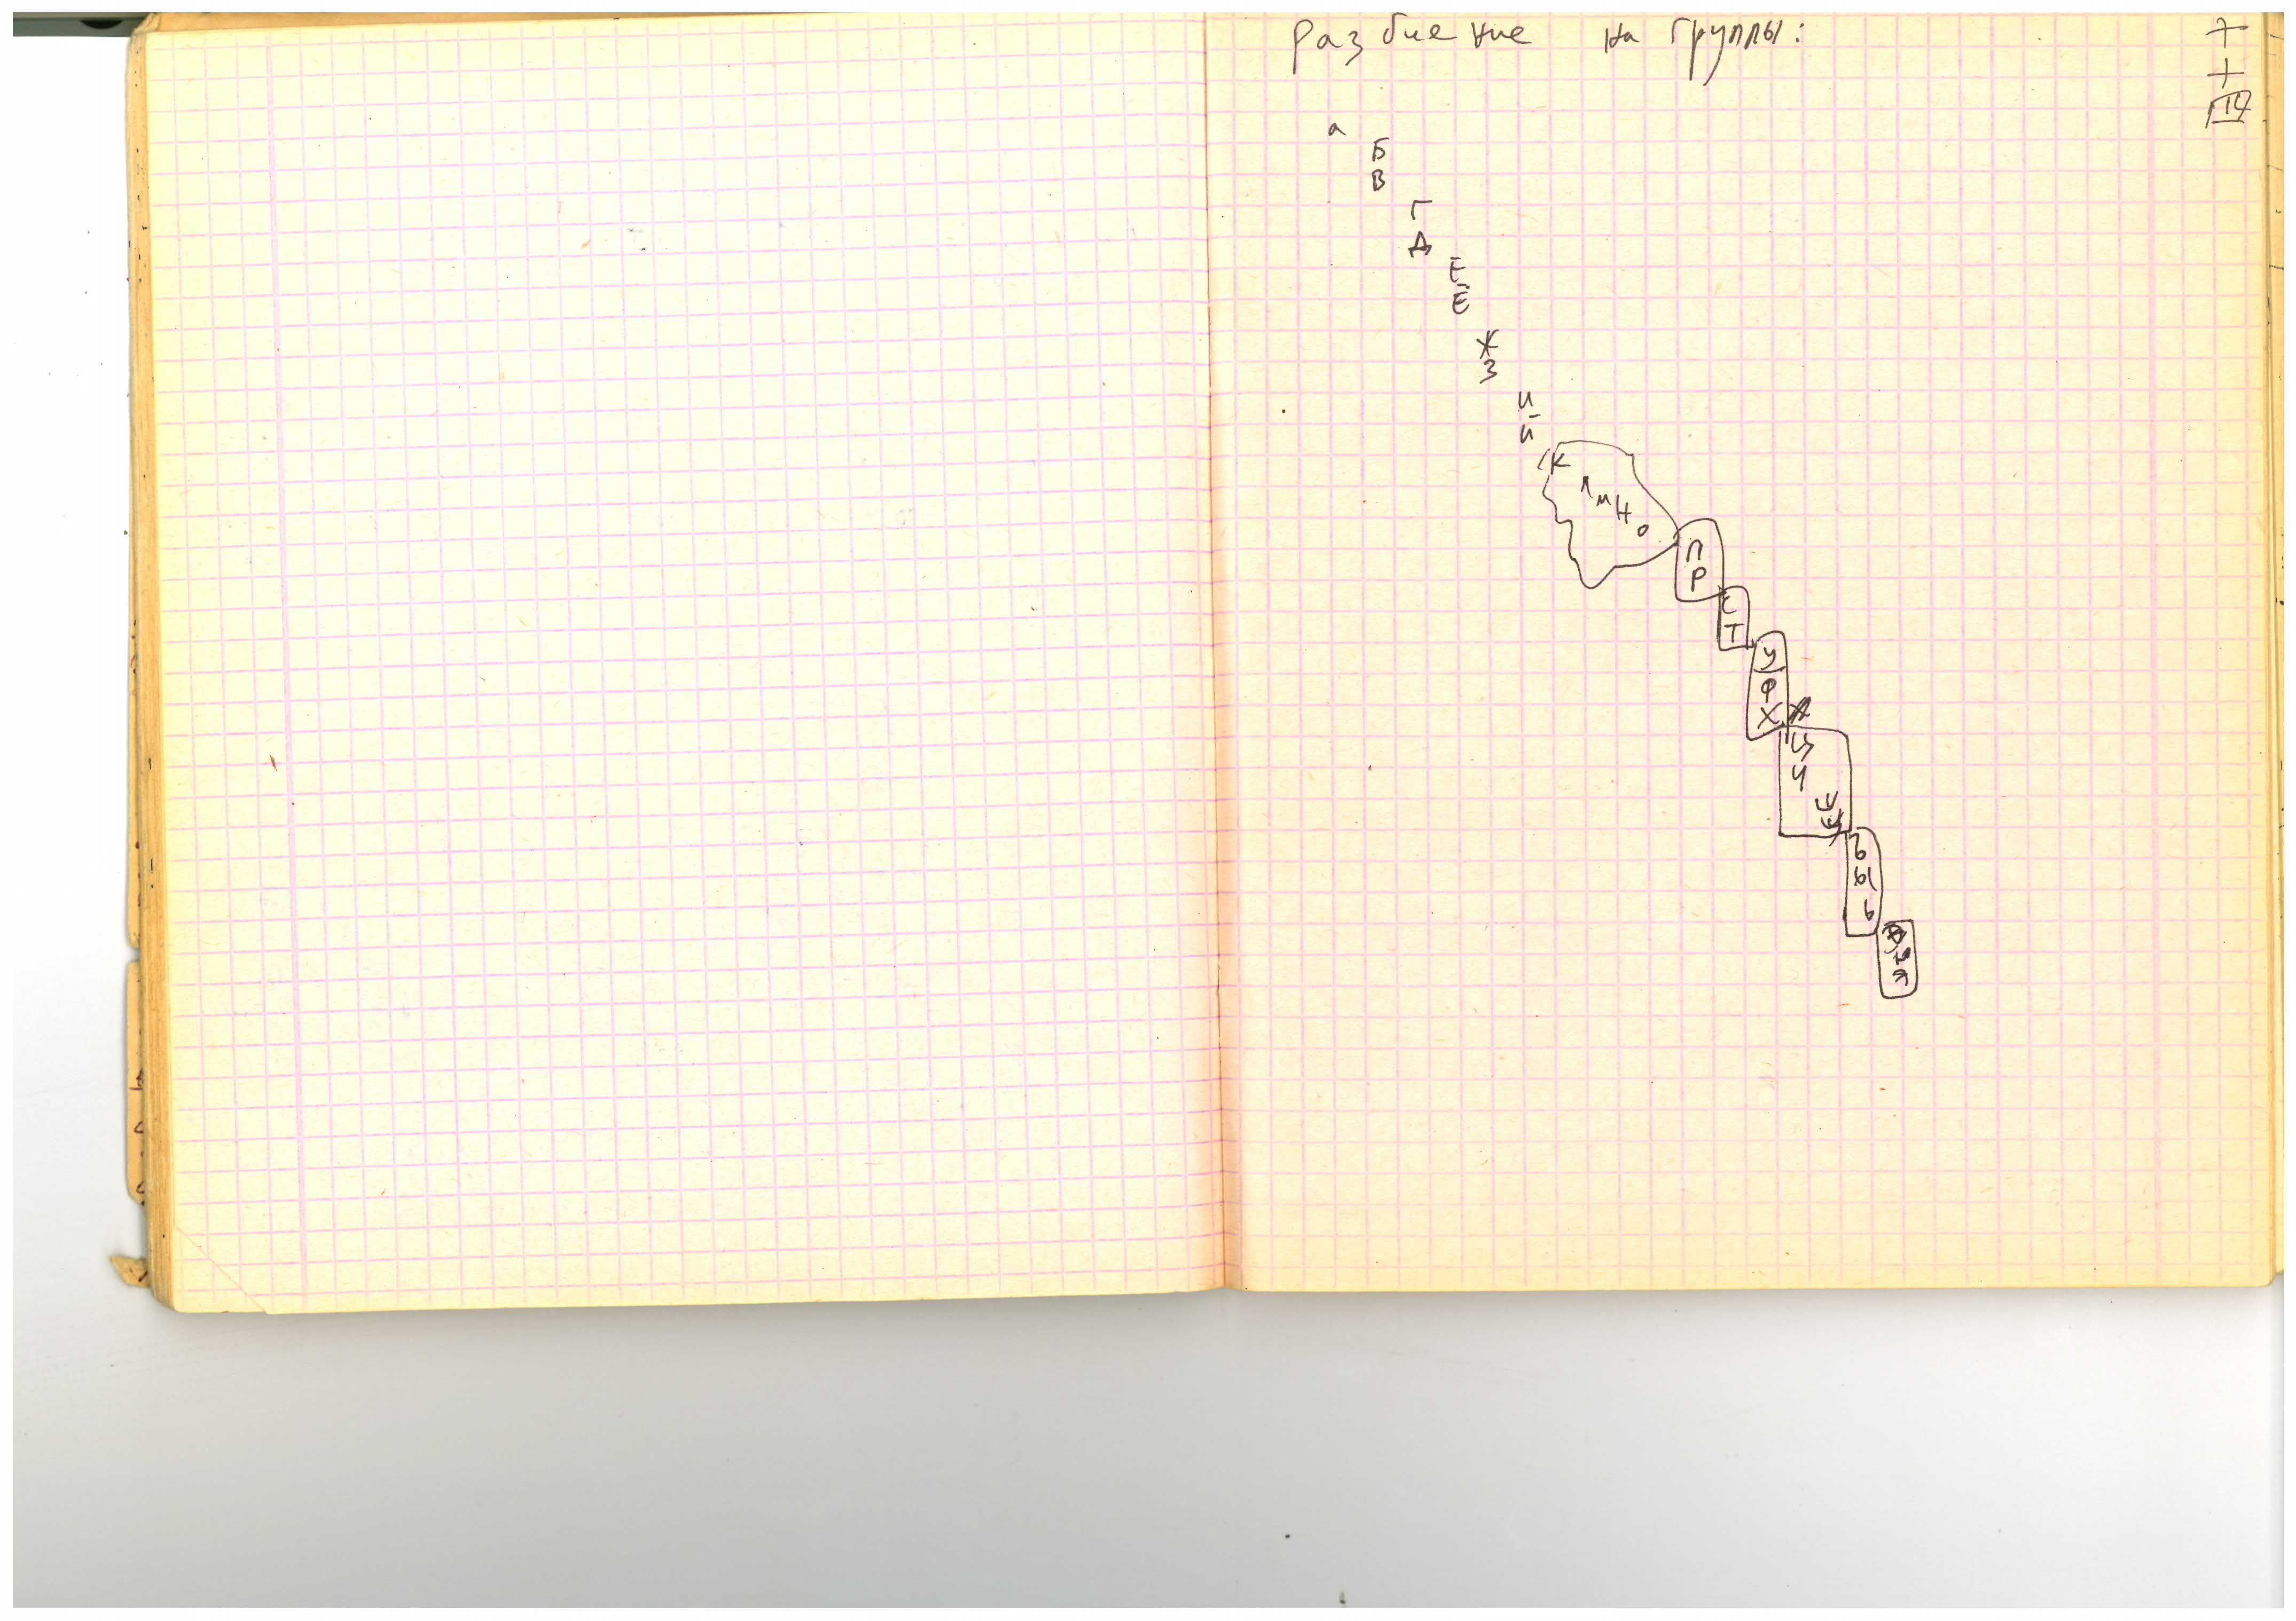 Разбиение на группы:
+
+
а
Б
В
Г
Д
Е
Ё
Ж
З
И
Й
К
л
м
н
о
П
Р
С
Т
У
Ф
Х
Ц
Ч
Ш
Щ
Ъ
Ы
Ь